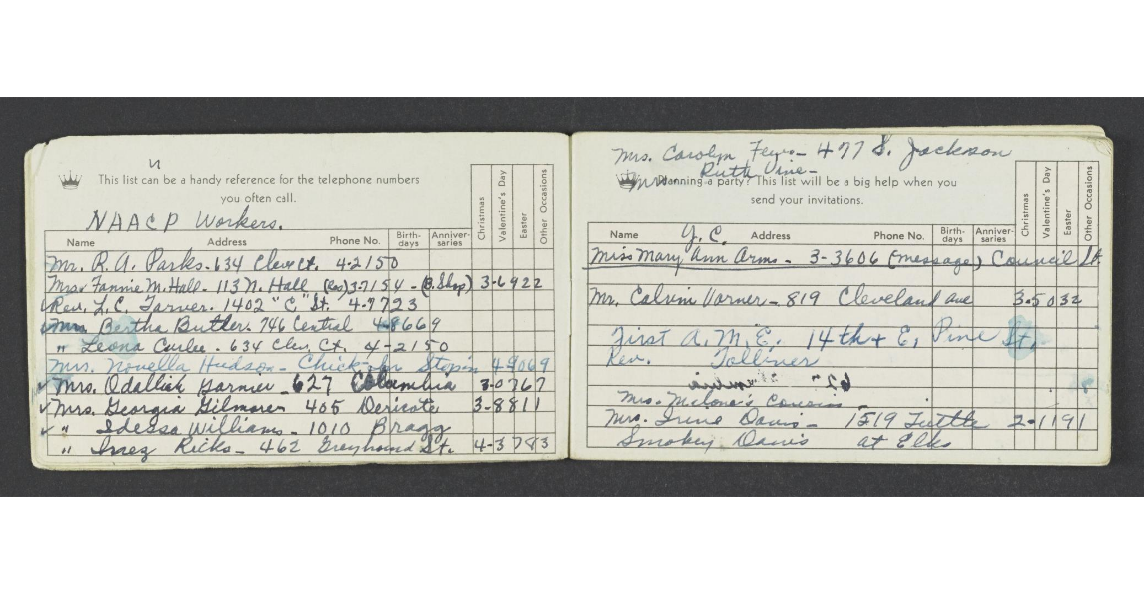 This list can be a handy reference for the telephone numbers
you often call.
NAACP Workers.
Name Address Phone No. Birth-days Anniver-saries Christmas Valentine's Day Easter Other Occasions
Mr. R. A. Parks - 634 Clev. Ct. 4-2150
Mrs. Fannie M. Hall - 113 N. Hall (res) 3-7154 - (B. Shop) 3-6922
Rev. L. C. Tarver. 1402 "C" St. 4-9723
Mrs Bertha Butler. 746 Central 4-8669
" Leona 634 Clev. Ct. 4-2150
Mrs. Novella Hudson - Chick-in Stop in 4-9069
Mrs. Odalliah Garnier - 627 Columbia 3-0767
Mrs. Georgia Gilmore 405 Dericote 3-8811
" Idessa Williams - 1010 Bragg
" Inez Ricks - 462 Greyhound St. 4-3783
Mrs. Carolyn - 477 S. Jackson
Mrs. Ruth Vine -
Planning a party? This list will be a big help when you
send your invitations.
Y. C.
Name Address Phone No. Birth-days Anniver-saries Christmas Valentine's Day Easter Other Occasions
Miss Mary Ann Arms - 3-3606 (message) Council St.
Mr. Calvin Varner - 819 Cleveland Ave 3-5032
First A. M. E. 14th & E. Pine St.
Rev. Tolliner
Mrs. Cousin -
Mrs. Irene Davis - 1519 Tuttle 2-1191
Smokey Davis at Elks